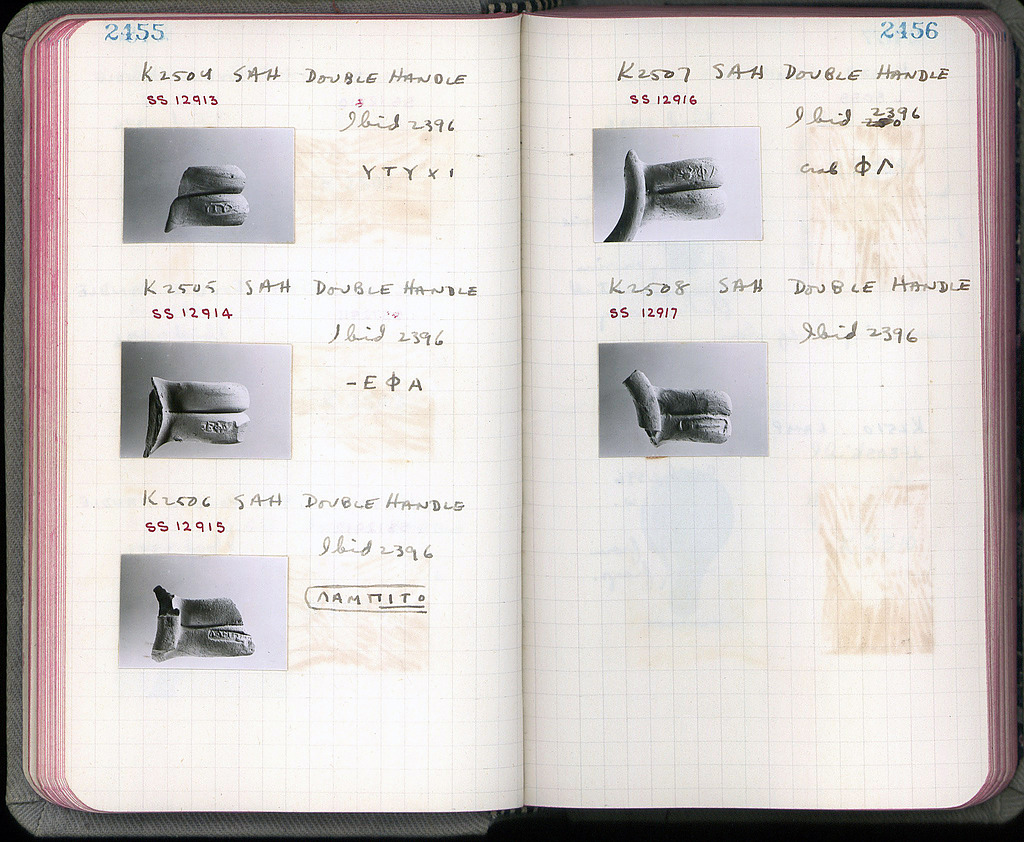 2455
K2504 SAH DOUBLE HANDLE
SS 12913
Ibid 2396
ΥΤΥΧΙ
K2505 SAH DOUBLE HANDLE
SS 12914
Ibid 2396
-ΕΦΑ
K2506 SAH DOUBLE HANDLE
SS 12915
Ibid 2396
ΛΑΜΠΙΤΟ
2456
K2507 SAH DOUBLE HANDLE
SS 12916
Ibid 2396
crab ΦΛ
K2508 SAH DOUBLE HANDLE
SS 12917
Ibid 2396